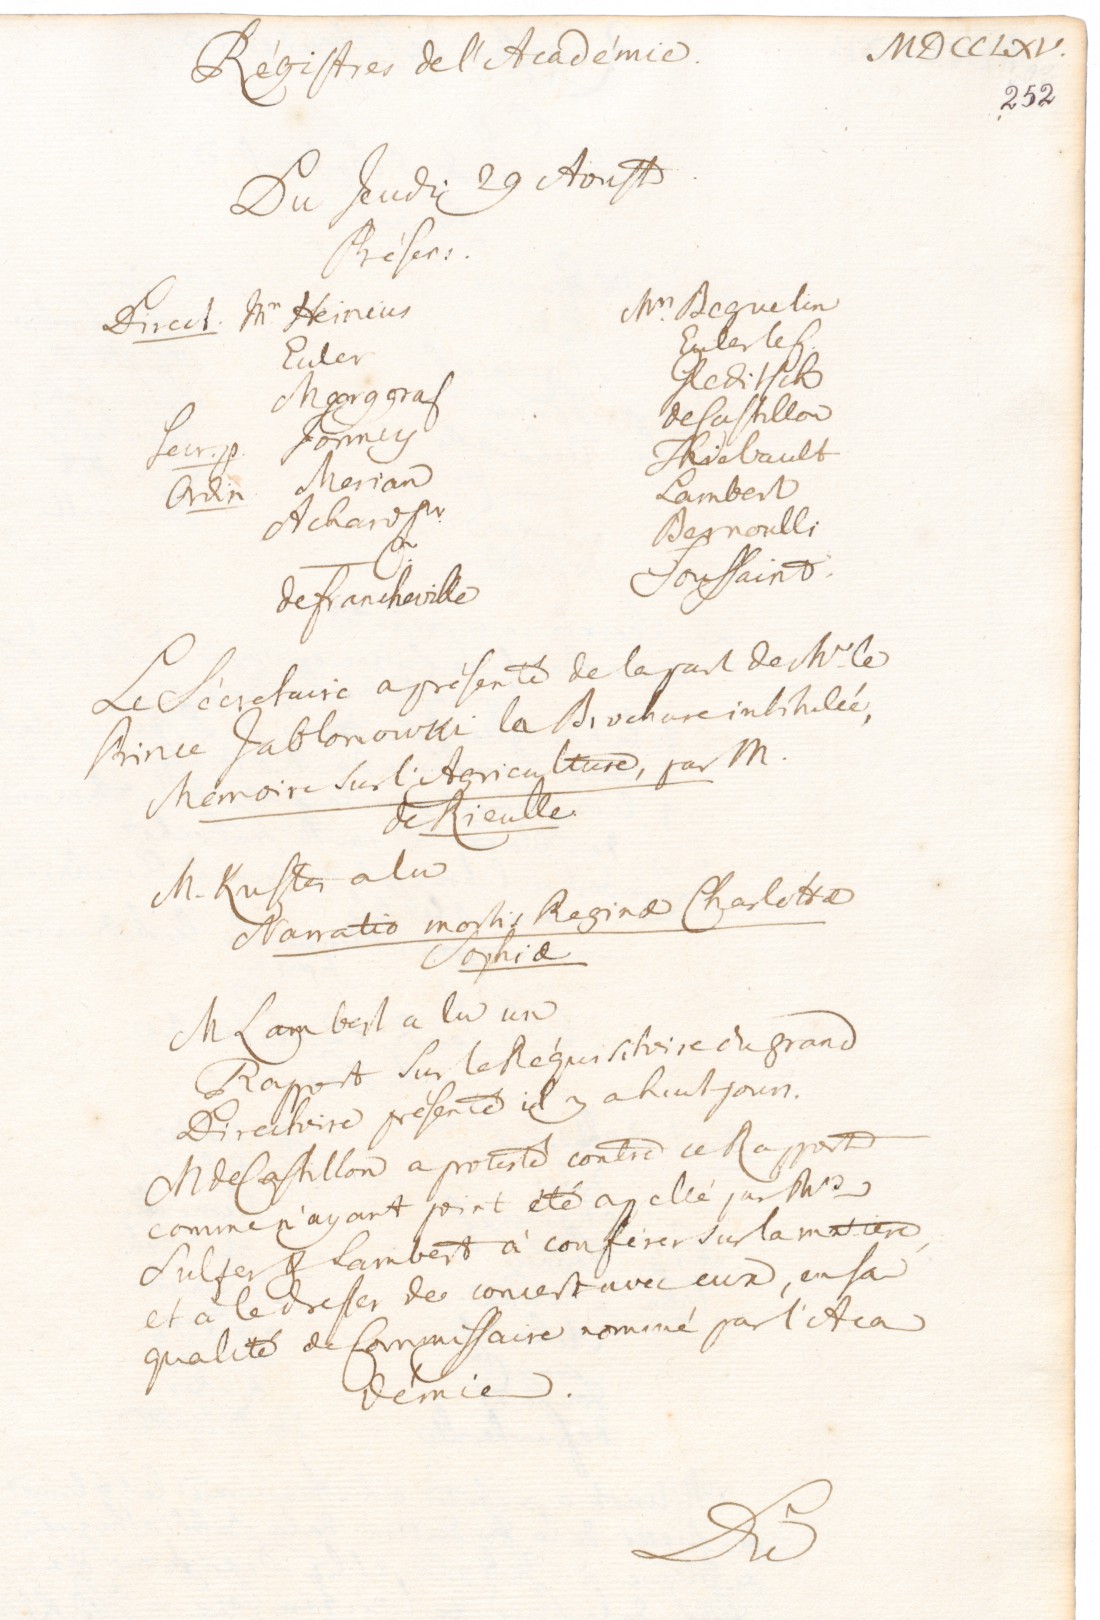 Régistres de l'Académie.
MDCCLXV.
252
Du Jeudi 29 Aoust
Présens.
Direct. Mrs Heinius
Euler
Marggraf
Secr. p. Formey
Ordin Merian
Achard Sr.
de Francheville
Mrs. Beguelin
Euler le f.
Gleditsch
de Castillon
Thiébault
Lambert
Bernoulli
Toussaint.
Le Sécretaire a présenté de la part de Mr le
Prince Jablonowski la Brochure intitulée,
Mémoire sur l'Agriculture, par M.
de Rieulle.
M. Kuster a lu
Narratio mortis Reginæ Charlottæ
Sophiæ
M Lambert a lu un
Rapport sur le Réquisitoire du grand
Directoire présenté il y a huit jours.
M de Castillon a protesté contre ce Rapport
comme n'ayant point été apellé par Mrs
Sulzer & Lambert à conférer sur la matiere,
et à le dresser de concert avec eux, en sa
qualité de Commissaire nommé par l'Aca
démie.